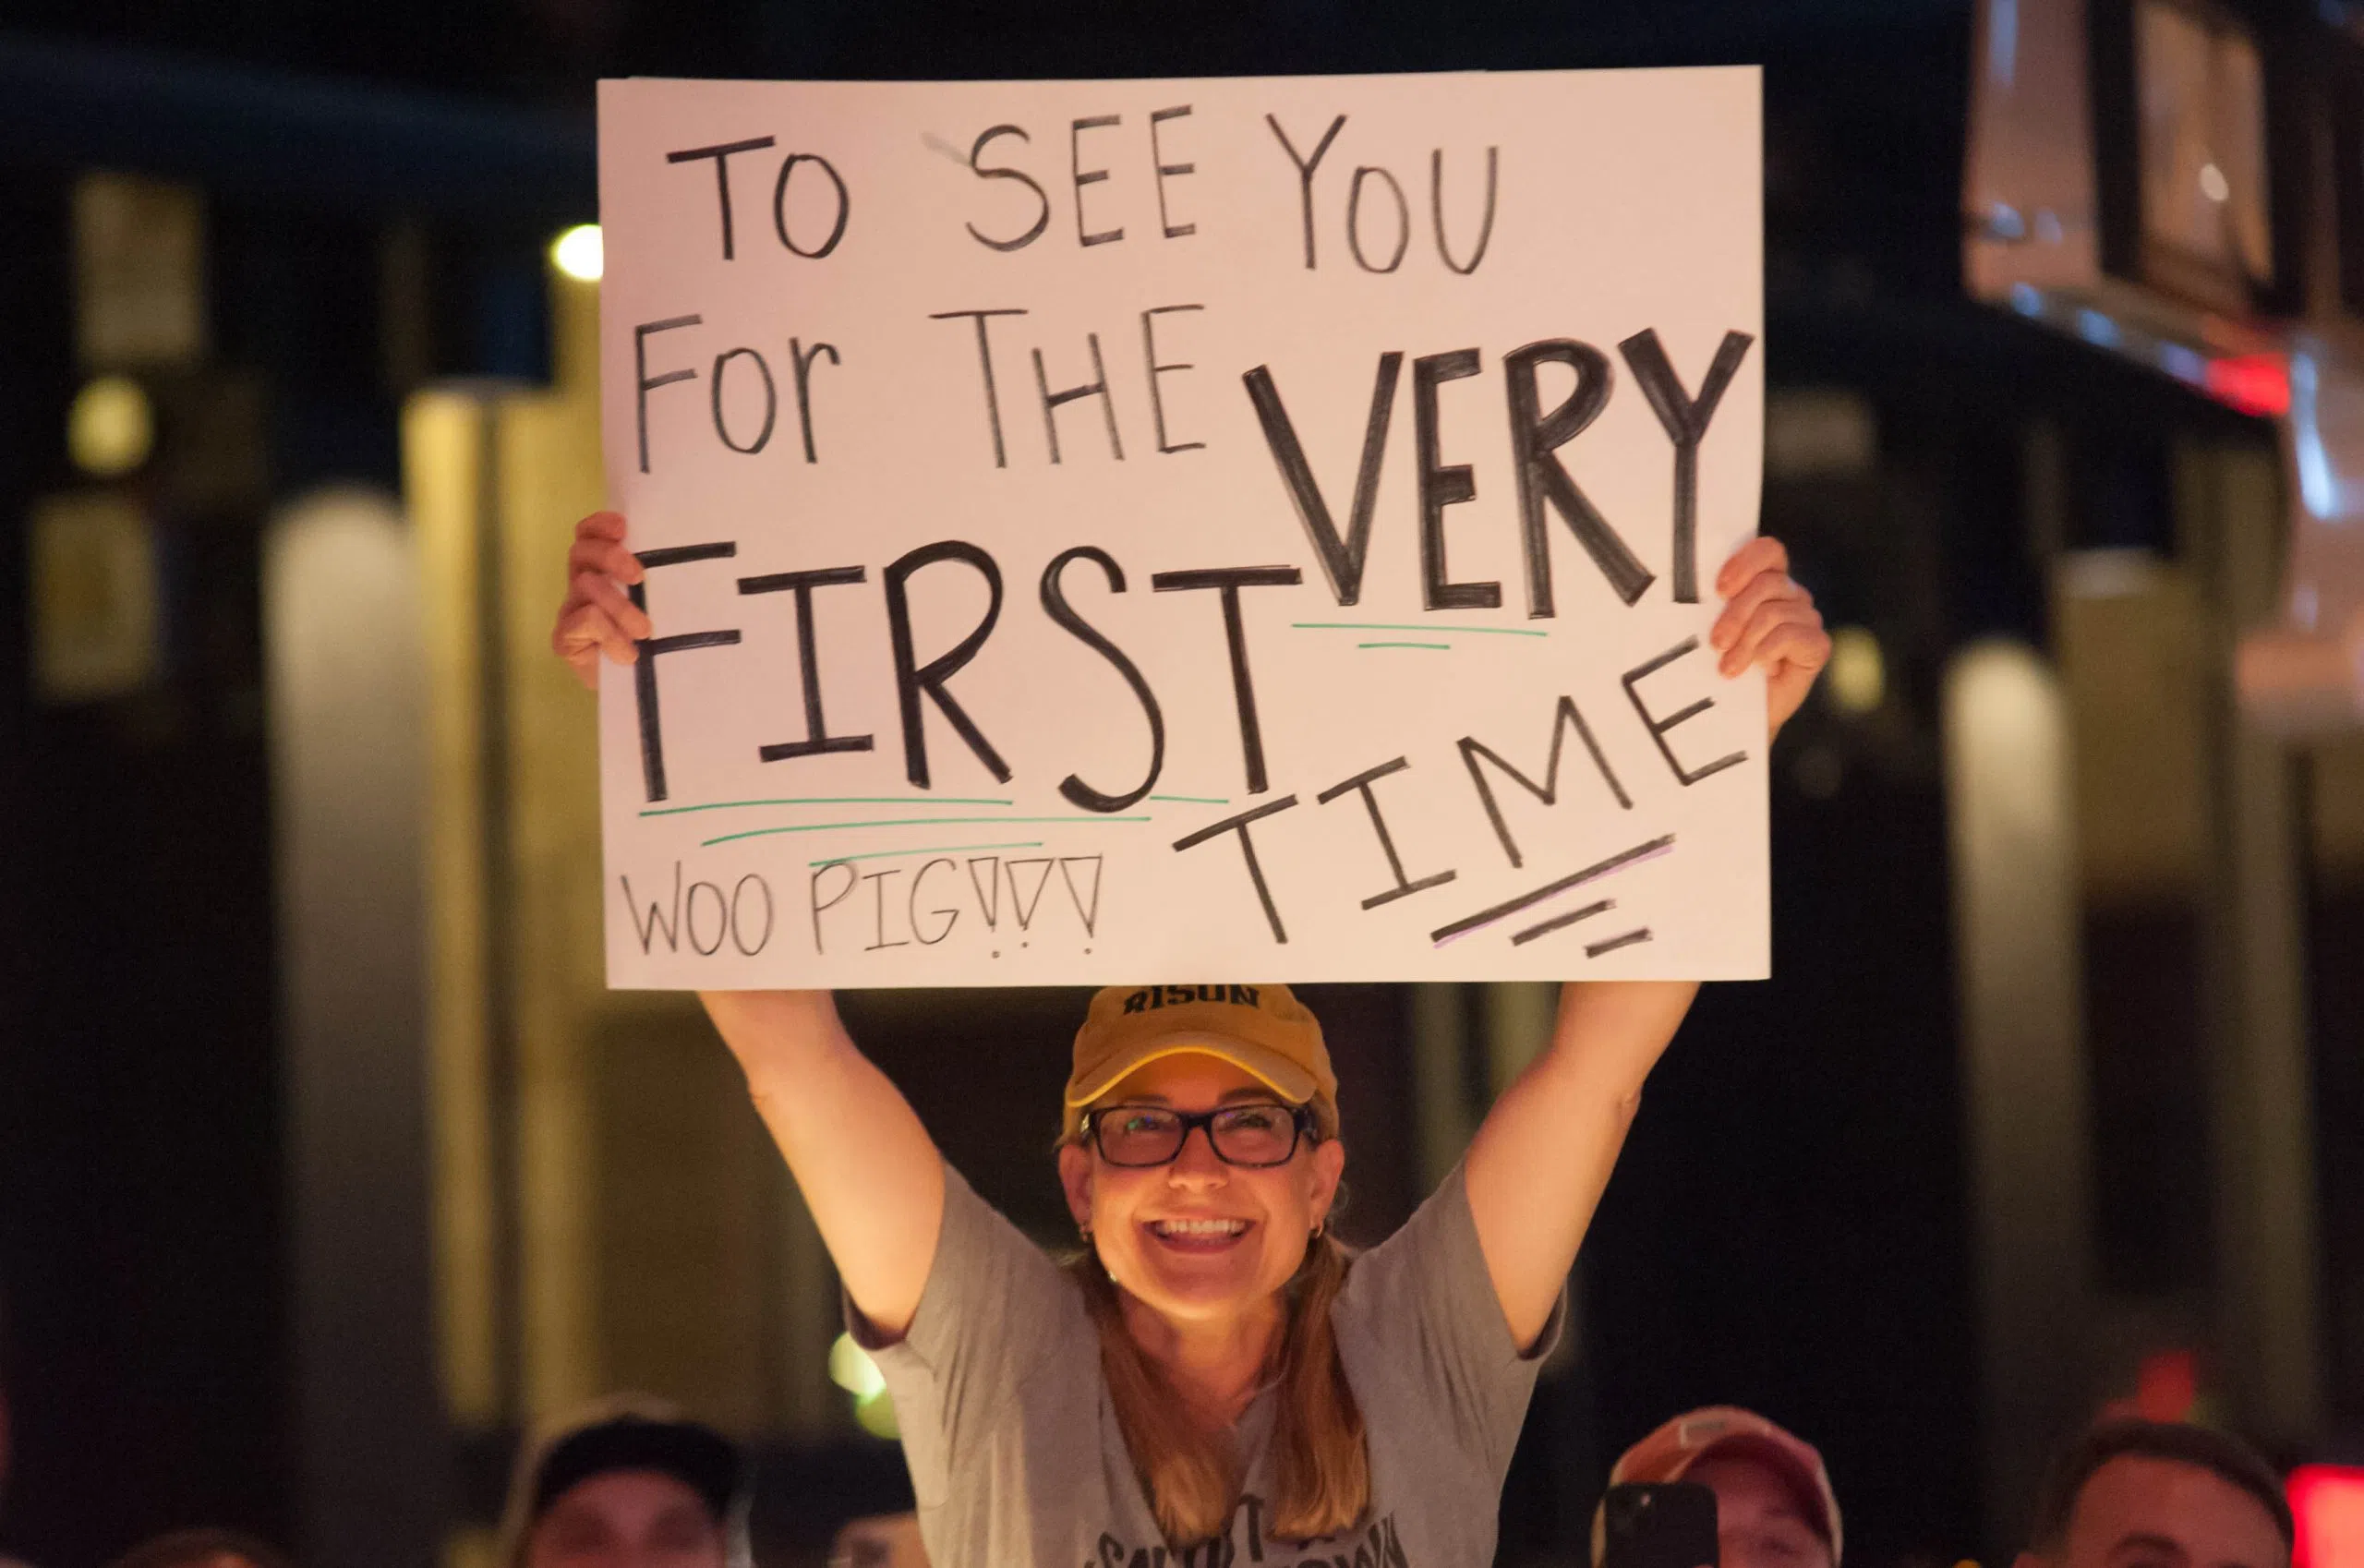 TO SEE YOU
FOr THE VERY
FIRST
TIME
WOO PIG!!!